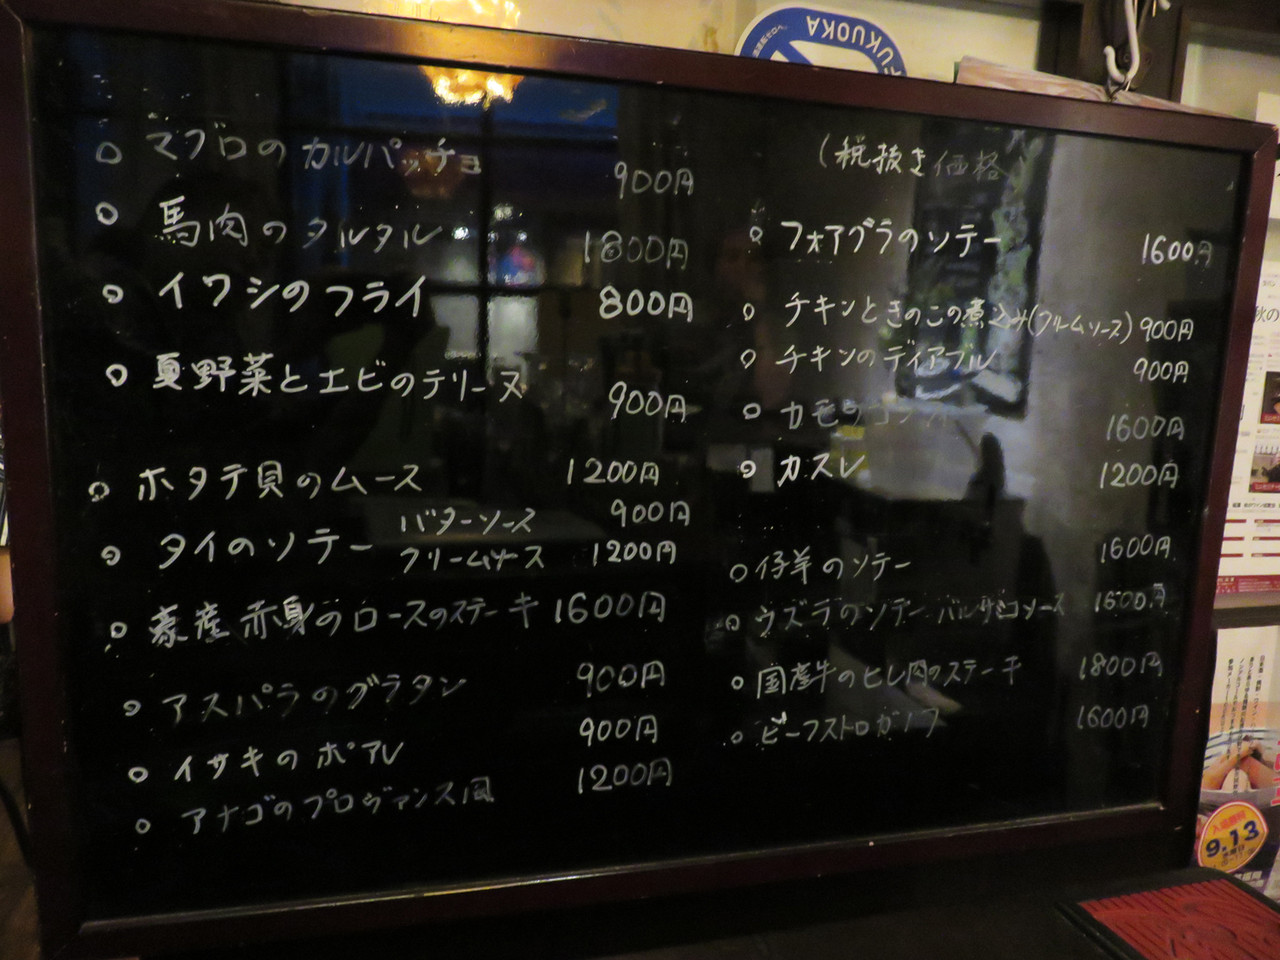 FUKUOKA
○ マグロのカルパッチョ 900円
○ 馬肉のタルタル 1800円
○ イワシのフライ 800円
○ 夏野菜とエビのテリーヌ 900円
○ ホタテ貝のムース 1200円
○ タイのソテー バターソース 900円
クリームソース 1200円
○ 豪産赤身のロースのステーキ 1600円
○ アスパラのグラタン 900円
○ イサキのポアレ 900円
○ アナゴのプロヴァンス風 1200円
(税抜き価格
○ フォアグラのソテー 1600円
○ チキンときのこの煮込み(クリームソース) 900円
○ チキンのディアブル 900円
○ カモのコンフィ 1600円
○ カスレ 1200円
○ 仔羊のソテー 1600円
○ ウズラのソテー バルサミコソース 1600円
○ 国産牛のヒレ肉のステーキ 1800円
○ ビーフストロガノフ 1600円
9.13